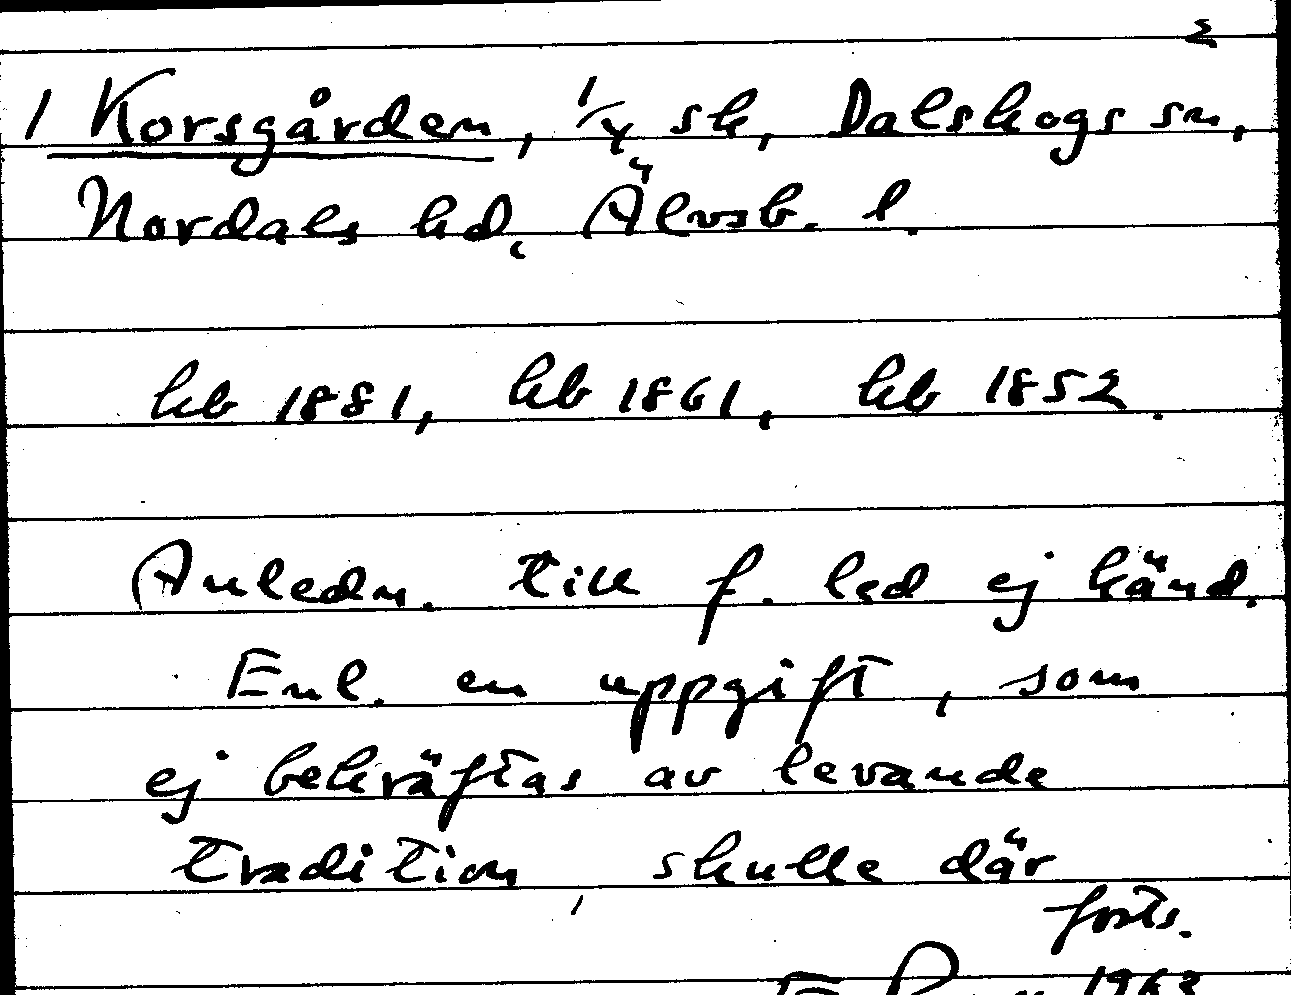 2
1 Korsgården, 1/4 sk, Dalskogs sn,
Nordals hd, Älvsb. l.
hb 1881, hb 1861, hb 1852.
Anledn. till f. led ej känd.
Enl. en uppgift, som
ej bekräftas av levande
tradition, skulle där
forts.
1963